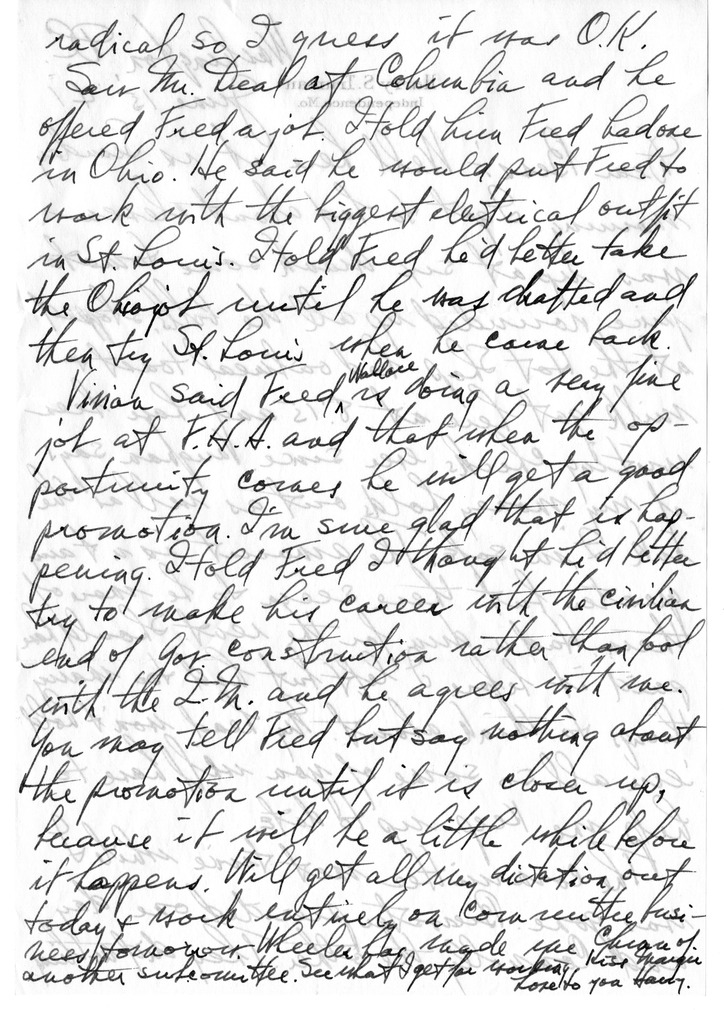 radical so I guess it was O.K.
Saw Mr. Deal at Columbia and he
offered Fred a job. I told him Fred had one
in Ohio. He said he would put Fred to
work with the biggest electrical outfit
in St. Louis. I told Fred he'd better take
the Ohio job until he was drafted and
then try St. Louis when he came back.
Vivian said Fred Wallace is doing a very fine
job at F.H.A. and that when the op-
portunity comes he will get a good
promotion. I'm sure glad that is hap-
pening. I told Fred I thought he'd better
try to make his career with the civilian
end of Gov. construction rather than fool
with the Q.M. and he agrees with me.
You may tell Fred but say nothing about
the promotion until it is closer up,
because it will be a little while before
it happens. Will get all my dictation out
today & work entirely on committee busi-
ness tomorrow. Wheeler has made me Chmn of
another subcommittee. See what I get for working. Kiss Margie
Love to you Harry.